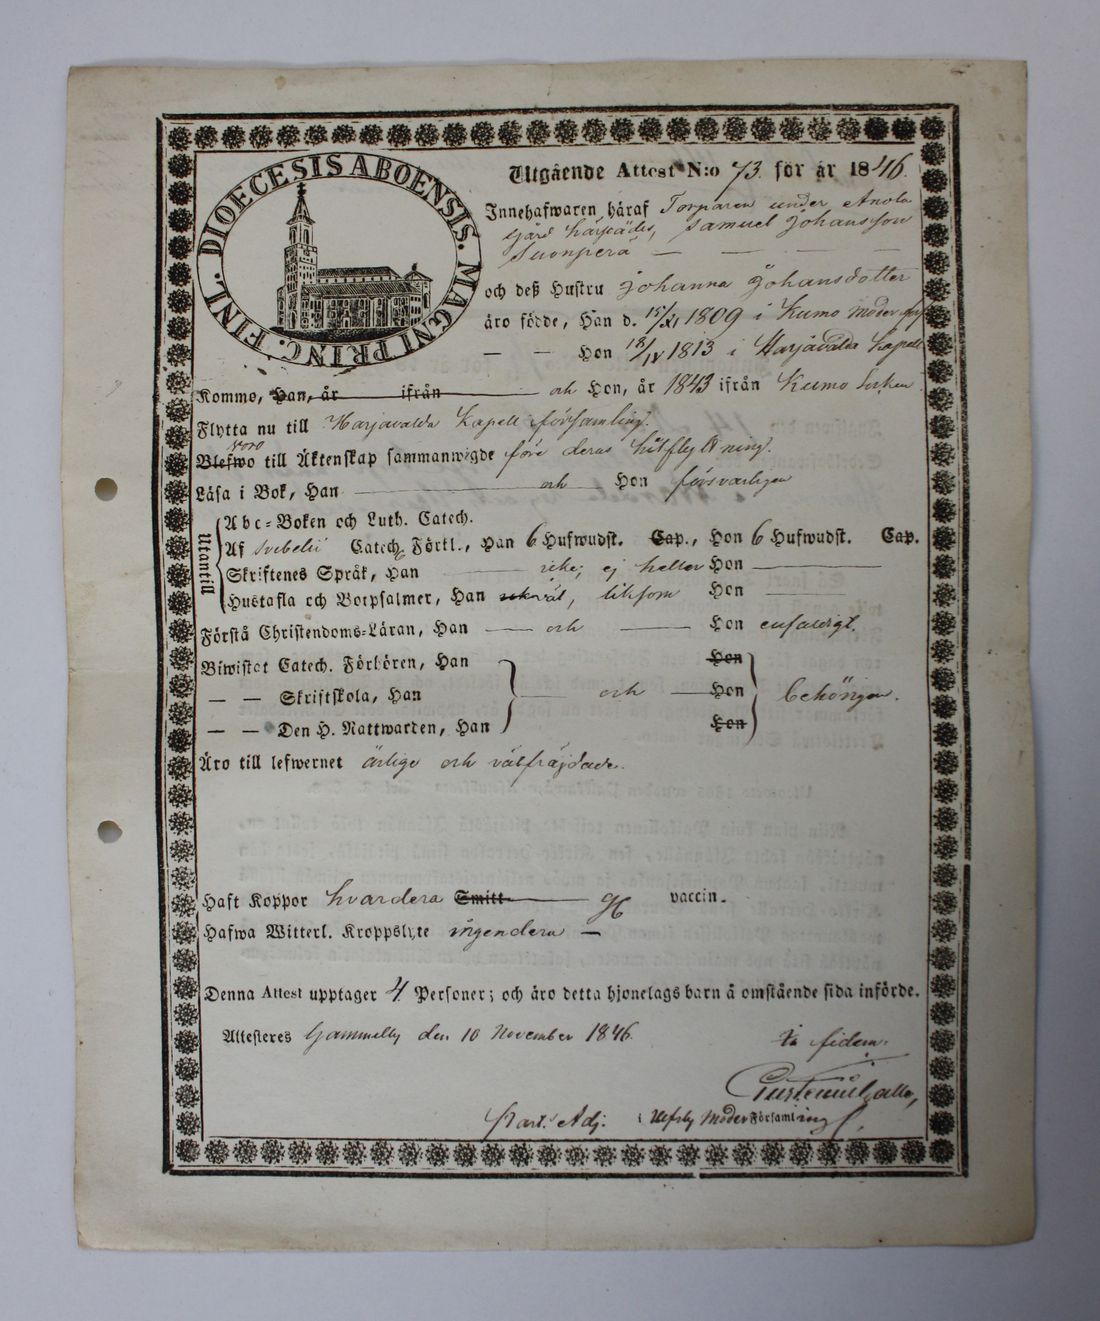 DIOECESIS ABOENSIS. MAGNI PRINC. FINL.
Utgående Attest N:o 73. för år 1846.
Innehafwaren häraf Torparen under Anola
Gård härstädes, Samuel Johansson
Suonperä — — —
och deß Hustru Johanna Johansdotter
äro födde, Han d. 15/XI 1809 i Kumo Moder
— — Hon 18/IV 1813 i Harjavalda Kapell
Kommo, Han, år ifrån och Hon, år 1843 ifrån Kumo Socken
Flytta nu till Harjavalda Kapell församling.
Blefwo voro till Äktenskap sammanwigde före deras hitflyttning.
Läsa i Bok, Han — och Hon försvarligen
Utantill
Abc-Boken och Luth. Catech.
Af Svebelii Catech. Förtl., Han 6 Hufwudst. Cap., Hon 6 Hufwudst. Cap.
Skriftenes Språk, Han — icke, ej heller Hon —
Hustafla och Botpsalmer, Han väl, liksom Hon —
Förstå Christendoms-Läran, Han — och — Hon enfaldigt.
Biwistat Catech. Förhören, Han Hon
— — Skriftskola, Han — och — Hon behörigen.
— — Den H. Nattwarden, Han Hon
Äro till lefwernet ärlige och välfräjdade.
Haft Koppor hvardera Smitt — vaccin.
Hafwa Witterl. Kroppslyte ingendera —
Denna Attest upptager 4 Personer; och äro detta hjonelags barn å omstående sida införde.
Attesteras Gammelby den 10 November 1846.
in fidem.
Past. Adj. i Ulfsby Moder Församling